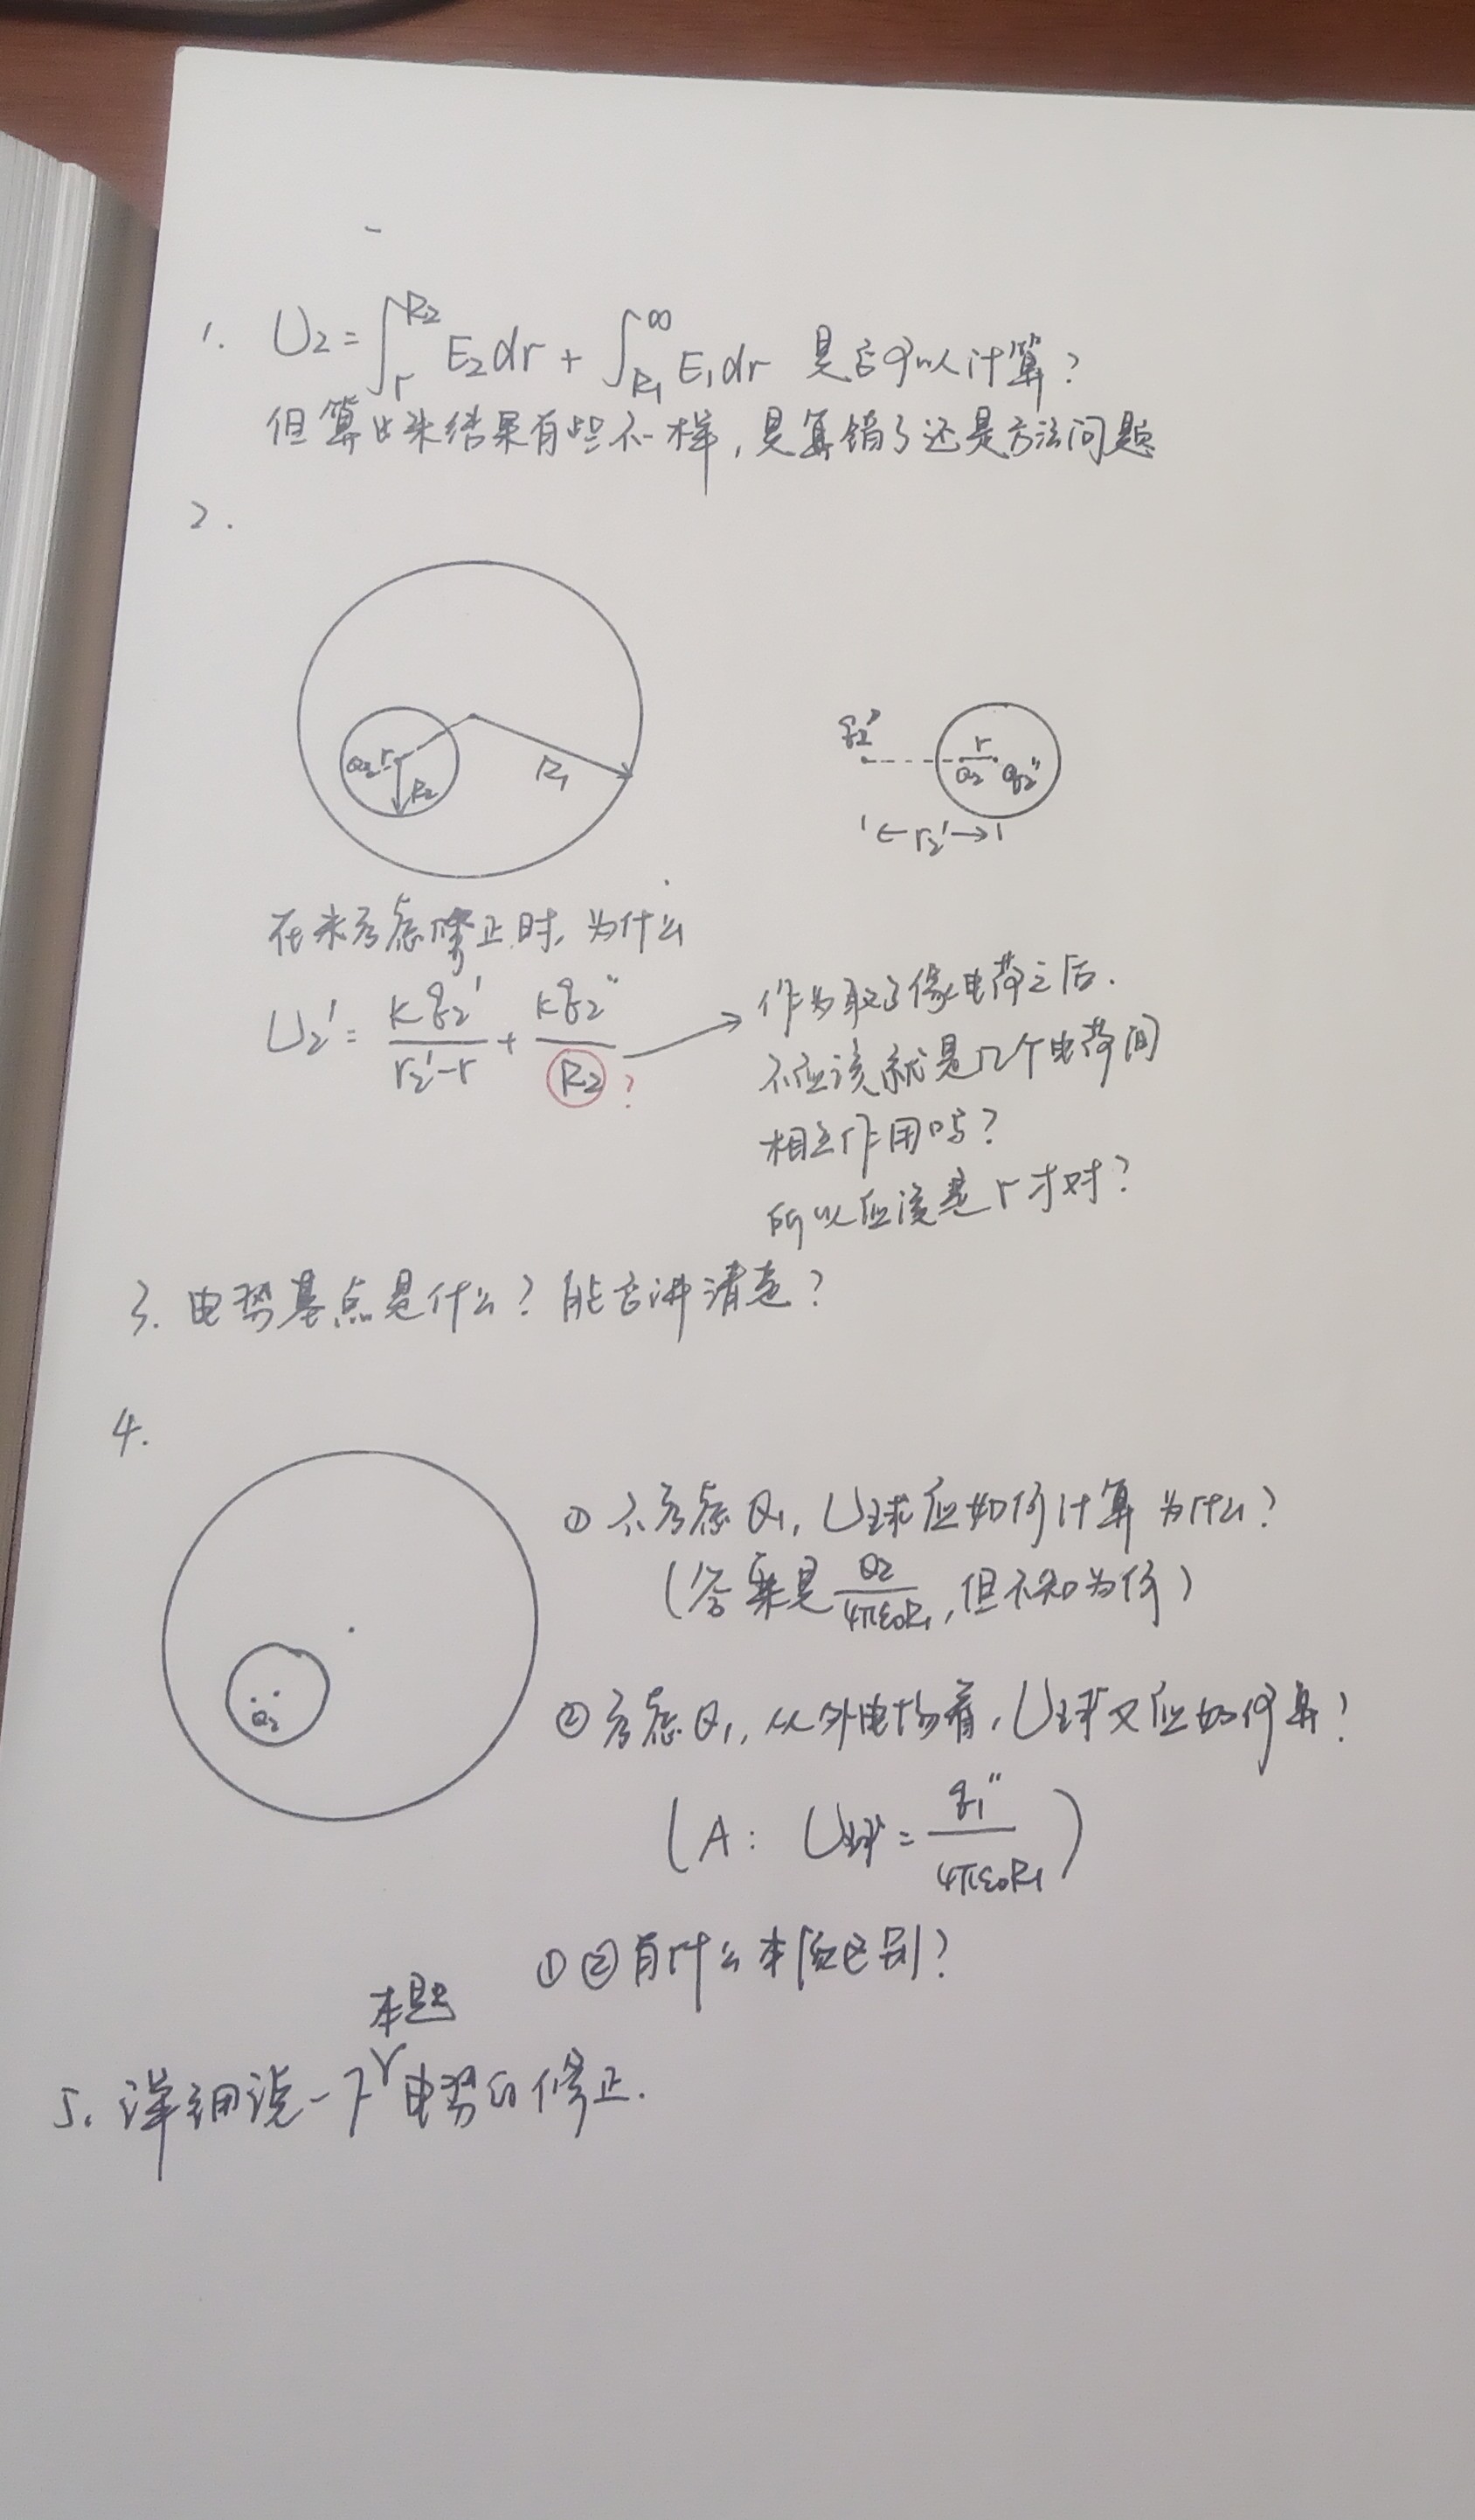 1. U₂=∫_r^{R₂} E₂dr + ∫_{R₁}^∞ E₁dr 是否可以计算？
但算出来结果有些不一样，是算错了还是方法问题
2.
Q₂ r
R₂
R₁
q₂'
r
Q₂ q₂''
←r₂'→
在未考虑修正时，为什么
U₂'= kq₂'/(r₂'-r) + kq₂''/R₂ ?
作为取了像电荷之后.
不应该就是几个电荷间
相互作用吗？
所以应该是r才对？
3. 电势基点是什么？能否讲清楚？
4.
Q₂
① 不考虑Q₁, U球应如何计算为什么？
(答案是 Q₂/4πε₀R₁, 但不知为何)
② 考虑Q₁, 从外电场看, U球又应如何算？
(A: U球= q₁''/4πε₀R₁)
①②有什么本质区别？
本题
5. 详细说一下电势的修正.